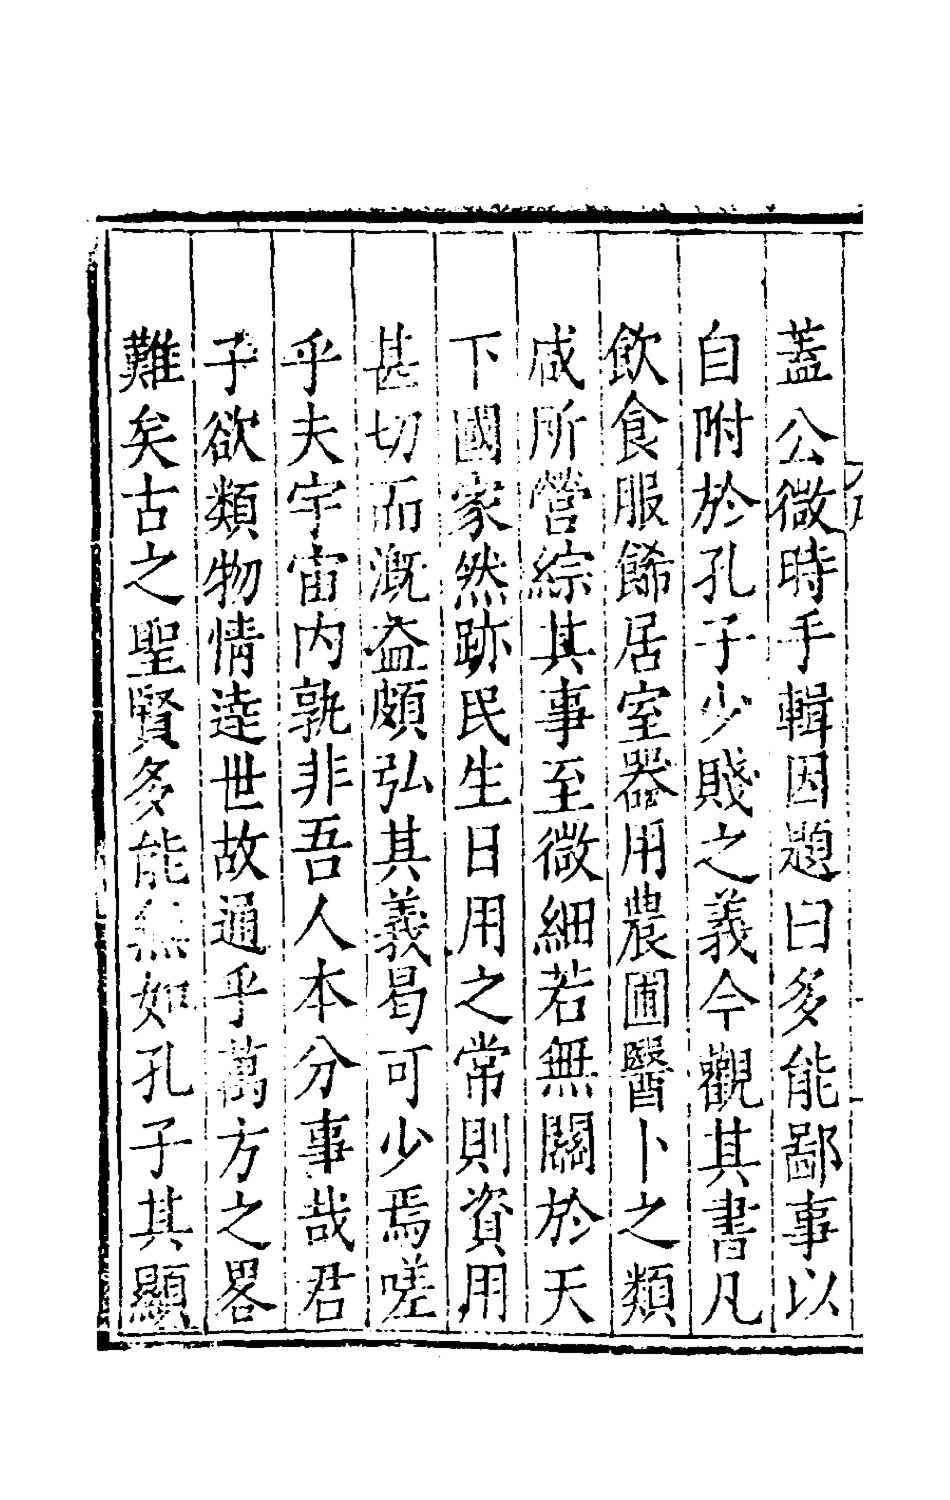 蓋公微時手輯因題曰多能鄙事以
自附於孔子少賤之義今觀其書凡
飲食服餙居室器用農圃醫卜之類
咸所營綜其事至微細若無關於天
下國家然跡民生日用之常則資用
甚切而溉益頗弘其義曷可少焉嗟
乎夫宇宙内孰非吾人本分事哉君
子欲類物情達世故通乎萬方之畧
難矣古之聖賢多能無如孔子其顯